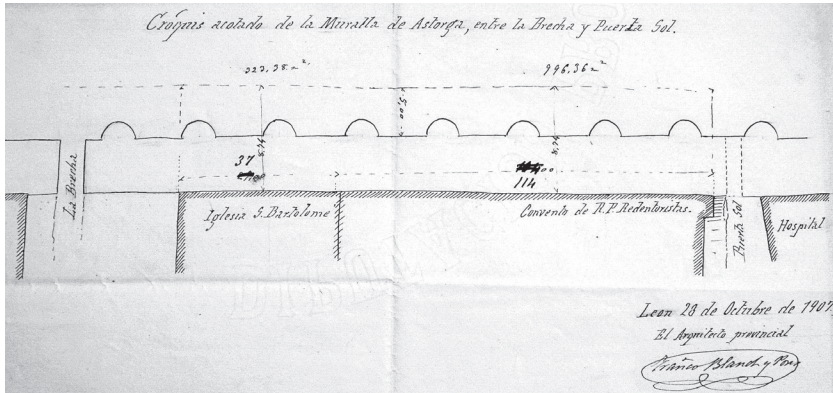 Cróquis acotado de la Muralla de Astorga, entre la Brecha y Puerta Sol.
323,38 m²
996,36 m²
5,00
8,74
8,74
37
00
114
La Brecha
Iglesia S. Bartolome
Convento de R.P. Redentoristas.
Puerta Sol
Hospital
Leon 28 de Octubre de 1907
El Arquitecto provincial
Blanch y Pons